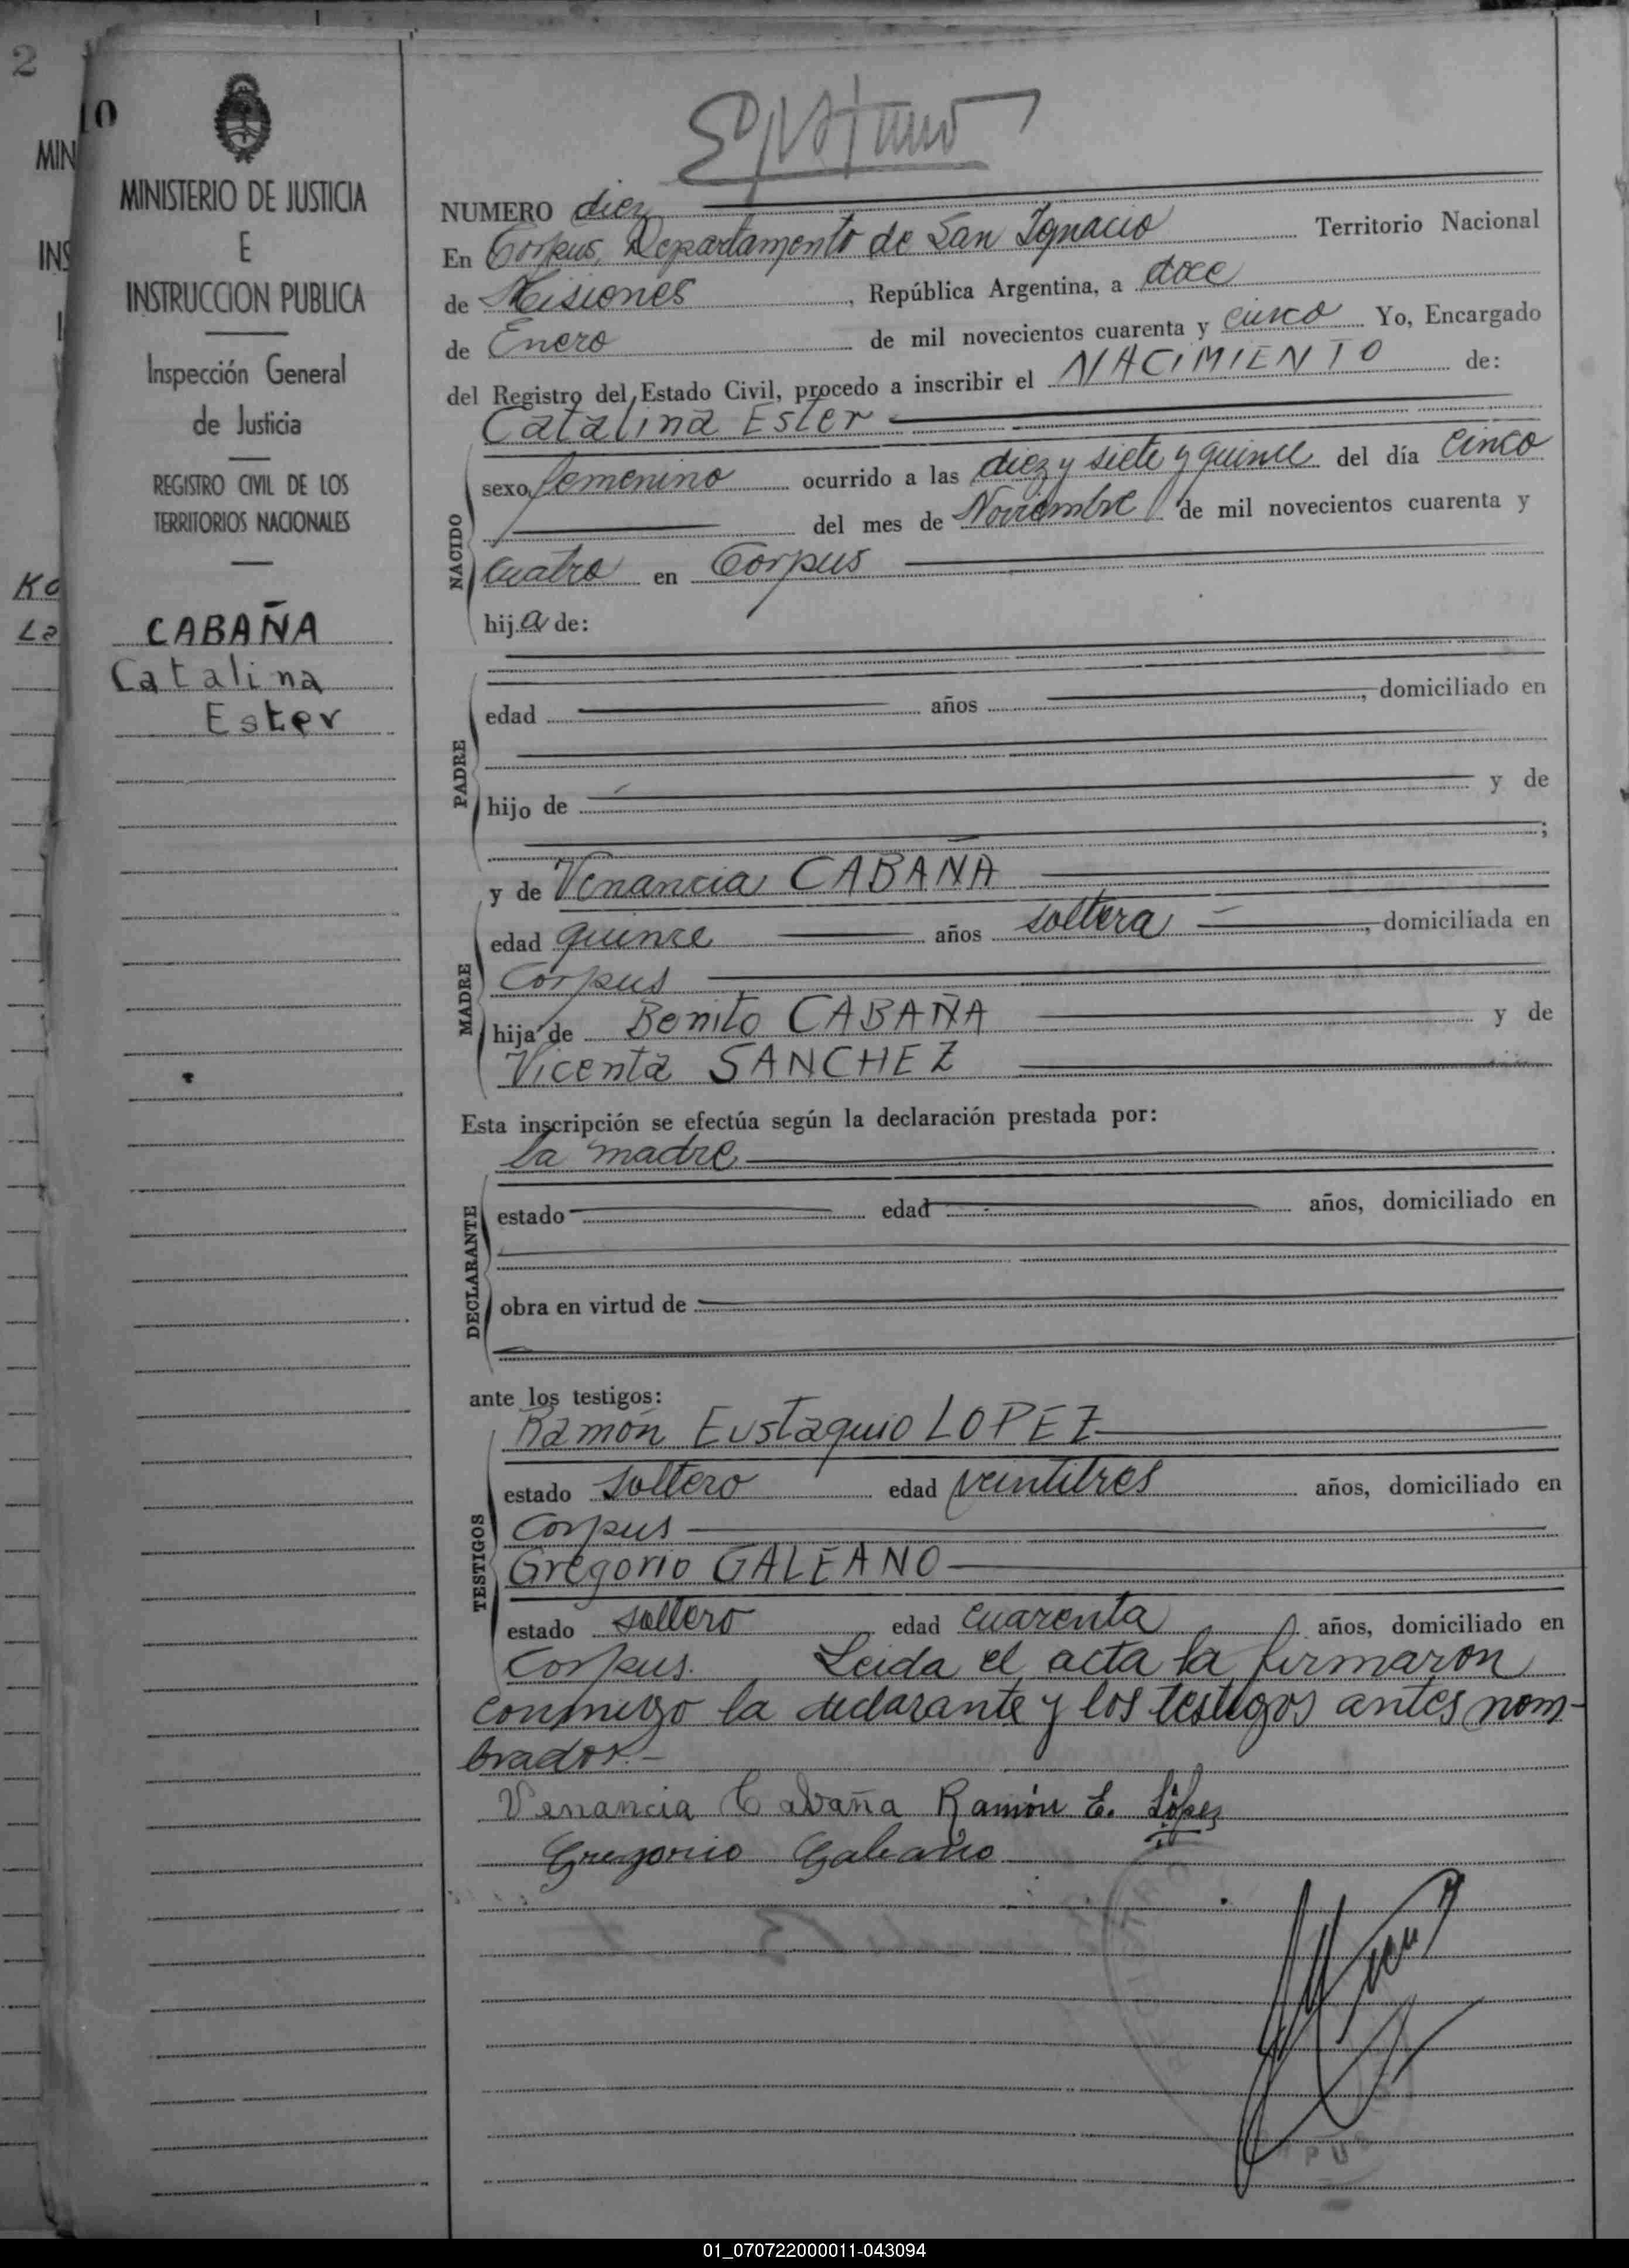 2
10
MIN
INS
Ko
La
MINISTERIO DE JUSTICIA
E
INSTRUCCION PUBLICA
Inspección General
de Justicia
REGISTRO CIVIL DE LOS
TERRITORIOS NACIONALES
CABAÑA
Catalina
Ester
NUMERO diez
En Corpus, Departamento de San Ignacio Territorio Nacional
de Misiones, República Argentina, a doce
de Enero de mil novecientos cuarenta y cinco Yo, Encargado
del Registro del Estado Civil, procedo a inscribir el NACIMIENTO de:
Catalina Ester
NACIDO
sexo femenino ocurrido a las diez y siete y quince del día cinco
del mes de Noviembre de mil novecientos cuarenta y
cuatro en Corpus
hija de:
PADRE
edad años , domiciliado en
hijo de y de
;
MADRE
y de Venancia CABAÑA
edad quince años soltera, domiciliada en
Corpus
hija de Benito CABAÑA y de
Vicenta SANCHEZ
Esta inscripción se efectúa según la declaración prestada por:
la madre
DECLARANTE
estado edad años, domiciliado en
obra en virtud de
ante los testigos:
TESTIGOS
Ramón Eustaquio LOPEZ
estado soltero edad veintitres años, domiciliado en
Corpus
Gregorio GALEANO
estado soltero edad cuarenta años, domiciliado en
Corpus. Leida el acta la firmaron
conmigo la declarante y los testigos antes nom-
brados.-
Venancia Cabaña Ramón E. López
Gregorio Galeano
01_070722000011-043094